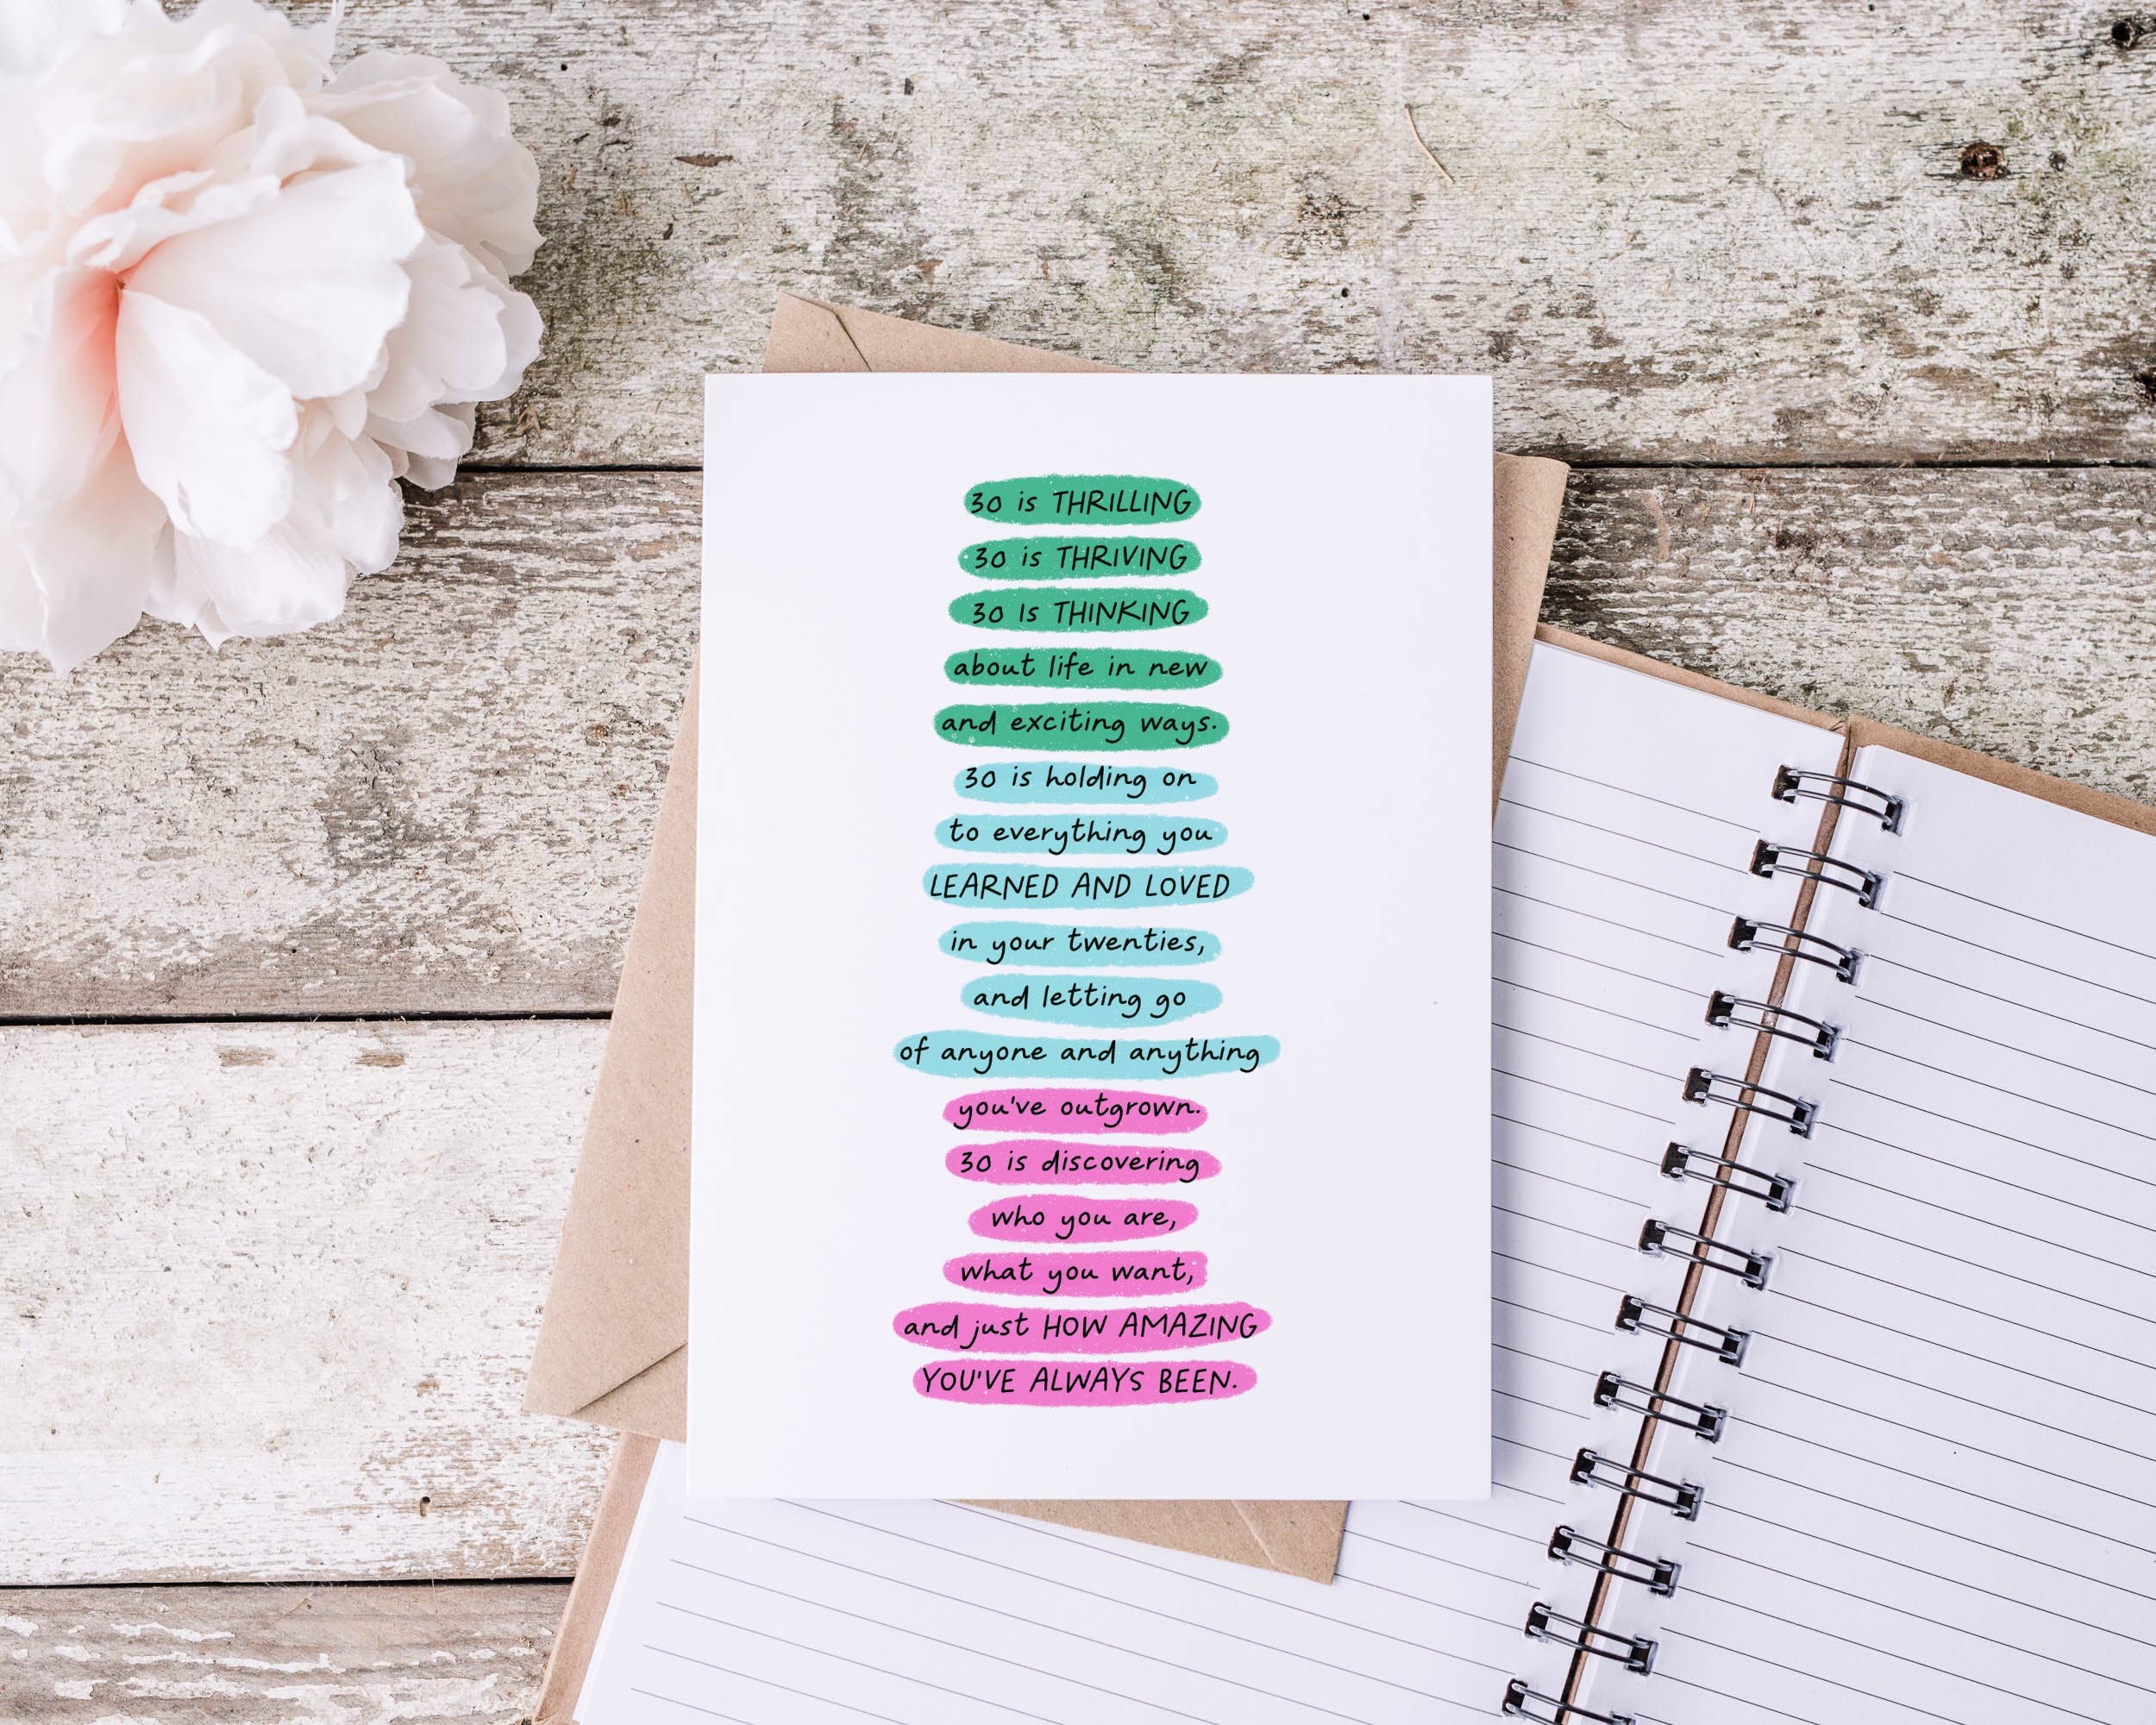 30 is THRILLING
30 is THRIVING
30 Is THINKING
about life in new
and exciting ways.
30 is holding on
to everything you
LEARNED AND LOVED
in your twenties,
and letting go
of anyone and anything
you've outgrown.
30 is discovering
who you are,
what you want,
and just HOW AMAZING
YOU'VE ALWAYS BEEN.